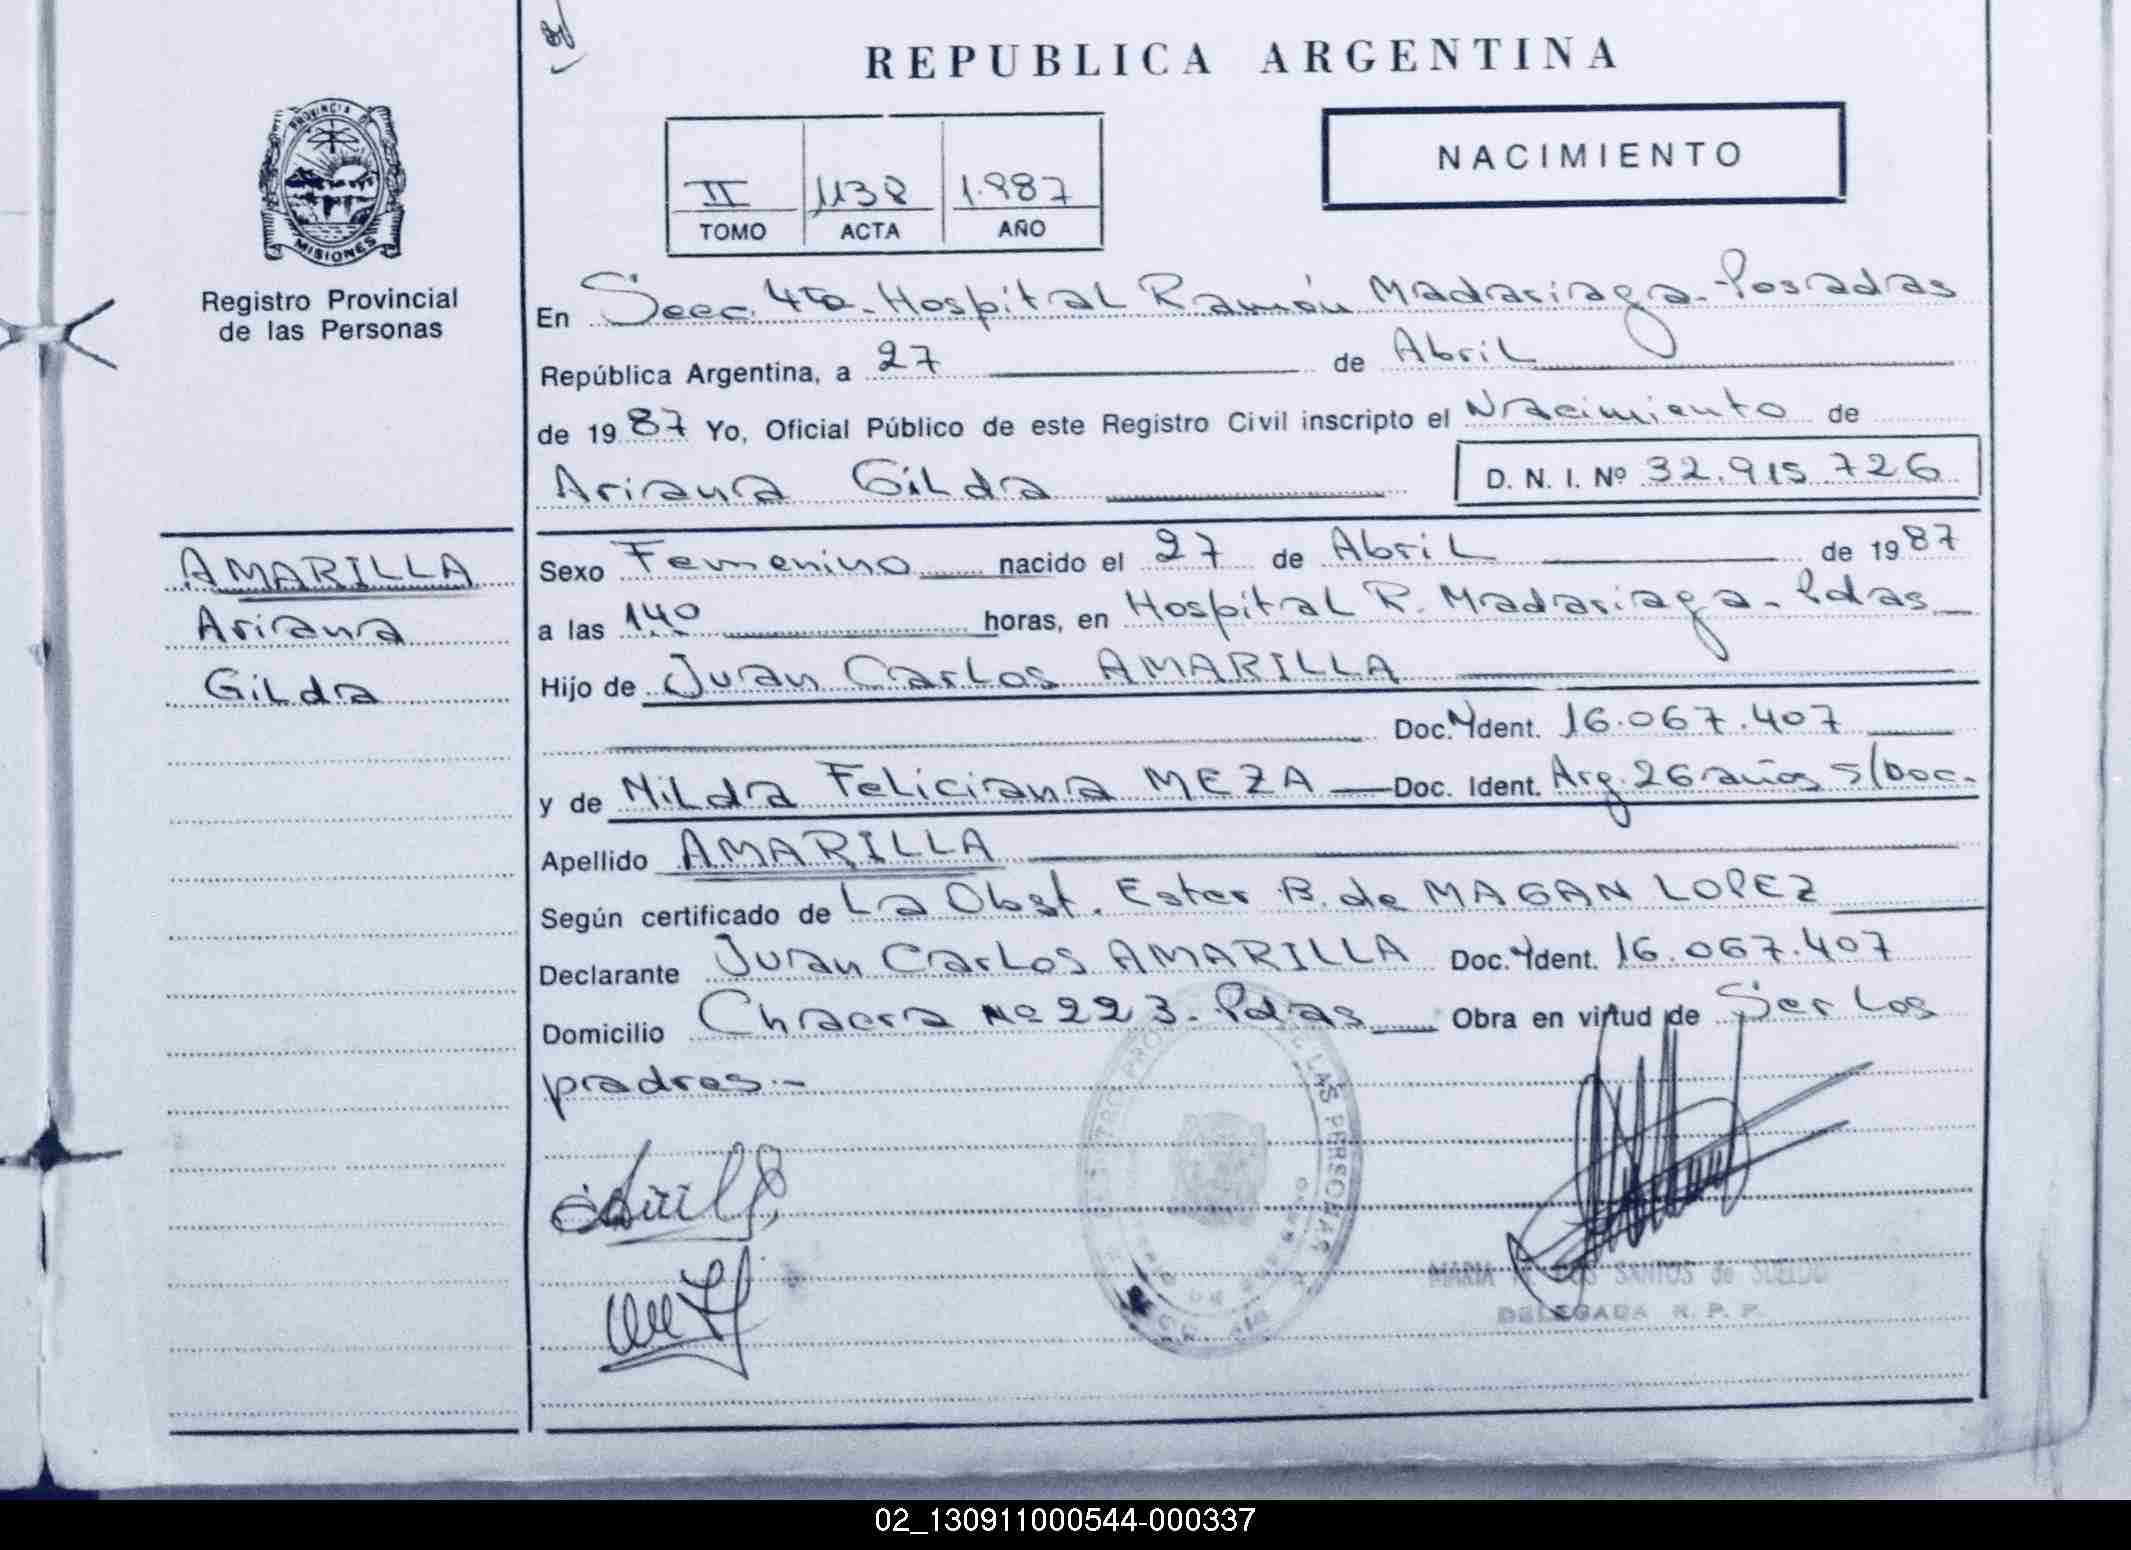 REPUBLICA ARGENTINA
PROVINCIA DE
MISIONES
Registro Provincial
de las Personas
II 1138 1.987
TOMO ACTA AÑO
NACIMIENTO
En Secc. 4ta. Hospital Ramón Madariaga - Posadas
República Argentina, a 27 de Abril
de 1987 Yo, Oficial Público de este Registro Civil inscripto el Nacimiento de
Ariana Gilda D. N. I. Nº 32.915.726
AMARILLA
Ariana
Gilda
Sexo Femenino nacido el 27 de Abril de 1987
a las 14º horas, en Hospital R. Madariaga - Pdas
Hijo de Juan Carlos AMARILLA
Doc. Ident. 16.067.407
y de Nilda Feliciana MEZA Doc. Ident. Arg. 26 años s/Doc.
Apellido AMARILLA
Según certificado de La Obst. Ester B. de MAGAN LOPEZ
Declarante Juan Carlos AMARILLA Doc. Ident. 16.067.407
Domicilio Chacra Nº 223. Pdas Obra en virtud de Ser los
padres.-
LAS PERSONAS
MARIA SANTOS de SUELDO
DELEGADA R. P. P.
02_130911000544-000337